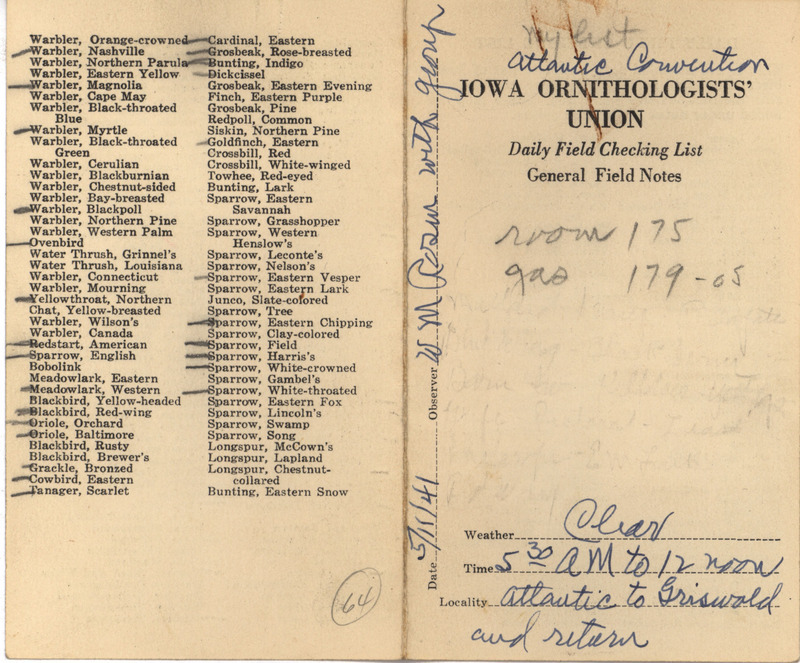 Warbler, Orange-crowned
Warbler, Nashville
Warbler, Northern Parula
Warbler, Eastern Yellow
Warbler, Magnolia
Warbler, Cape May
Warbler, Black-throated
Blue
Warbler, Myrtle
Warbler, Black-throated
Green
Warbler, Cerulian
Warbler, Blackburnian
Warbler, Chestnut-sided
Warbler, Bay-breasted
Warbler, Blackpoll
Warbler, Northern Pine
Warbler, Western Palm
Ovenbird
Water Thrush, Grinnel's
Water Thrush, Louisiana
Warbler, Connecticut
Warbler, Mourning
Yellowthroat, Northern
Chat, Yellow-breasted
Warbler, Wilson's
Warbler, Canada
Redstart, American
Sparrow, English
Bobolink
Meadowlark, Eastern
Meadowlark, Western
Blackbird, Yellow-headed
Blackbird, Red-wing
Oriole, Orchard
Oriole, Baltimore
Blackbird, Rusty
Blackbird, Brewer's
Grackle, Bronzed
Cowbird, Eastern
Tanager, Scarlet
Cardinal, Eastern
Grosbeak, Rose-breasted
Bunting, Indigo
Dickcissel
Grosbeak, Eastern Evening
Finch, Eastern Purple
Grosbeak, Pine
Redpoll, Common
Siskin, Northern Pine
Goldfinch, Eastern
Crossbill, Red
Crossbill, White-winged
Towhee, Red-eyed
Bunting, Lark
Sparrow, Eastern
Savannah
Sparrow, Grasshopper
Sparrow, Western
Henslow's
Sparrow, Leconte's
Sparrow, Nelson's
Sparrow, Eastern Vesper
Sparrow, Eastern Lark
Junco, Slate-colored
Sparrow, Tree
Sparrow, Eastern Chipping
Sparrow, Clay-colored
Sparrow, Field
Sparrow, Harris's
Sparrow, White-crowned
Sparrow, Gambel's
Sparrow, White-throated
Sparrow, Eastern Fox
Sparrow, Lincoln's
Sparrow, Swamp
Sparrow, Song
Longspur, McCown's
Longspur, Lapland
Longspur, Chestnut-
collared
Bunting, Eastern Snow
64
Date 5/11/41 Observer W M Rosen with group
My list
Atlantic Convention
IOWA ORNITHOLOGISTS'
UNION
Daily Field Checking List
General Field Notes
room 175
gas 179-05
Weather Clear
Time 5 30 AM to 12 noon
Locality Atlantic to Griswold
and return